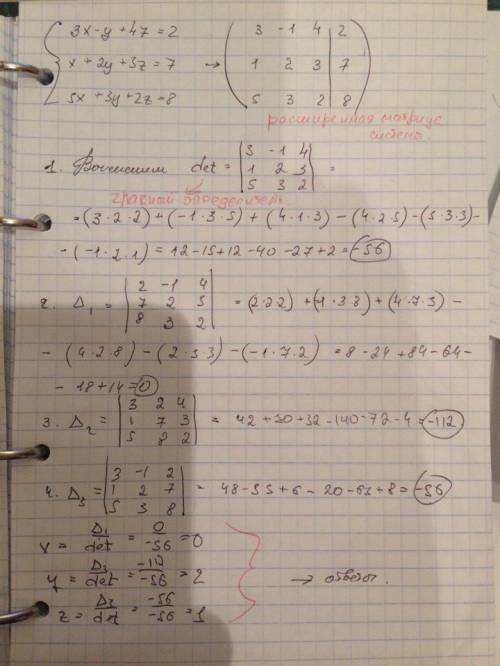 3x-y+4z=2
x+2y+3z=7 →
5x+3y+2z=8
3 -1 4 | 2
1 2 3 | 7
5 3 2 | 8
расширенная матрица
системы.
1. Вычислим det = |3 -1 4| =
|1 2 3|
|5 3 2|
главный определитель
=(3·2·2)+(-1·3·5)+(4·1·3)-(4·2·5)-(5·3·3)-
-(-1·2·1) = 12-15+12-40-27+2=-56
2. Δ₁ = |2 -1 4| = (2·2·2)+(-1·3·8)+(4·7·3)-
|7 2 3|
|8 3 2|
-(4·2·8)-(2·3·3)-(-1·7·2) =8-24+84-64-
-18+14=0
3. Δ₂ = |3 2 4| = 42+30+32-140-72-4=-112
|1 7 3|
|5 8 2|
4. Δ₃ = |3 -1 2| = 48-35+6-20-63+8=-56
|1 2 7|
|5 3 8|
x = Δ₁/det = 0/-56 =0
y = Δ₂/det = -112/-56 =2 → ответы.
z = Δ₃/det = -56/-56 =1